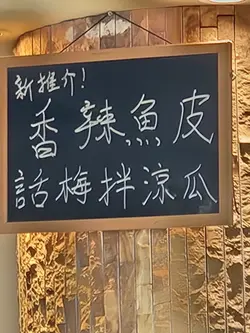 新推介!
香辣魚皮
話梅拌涼瓜